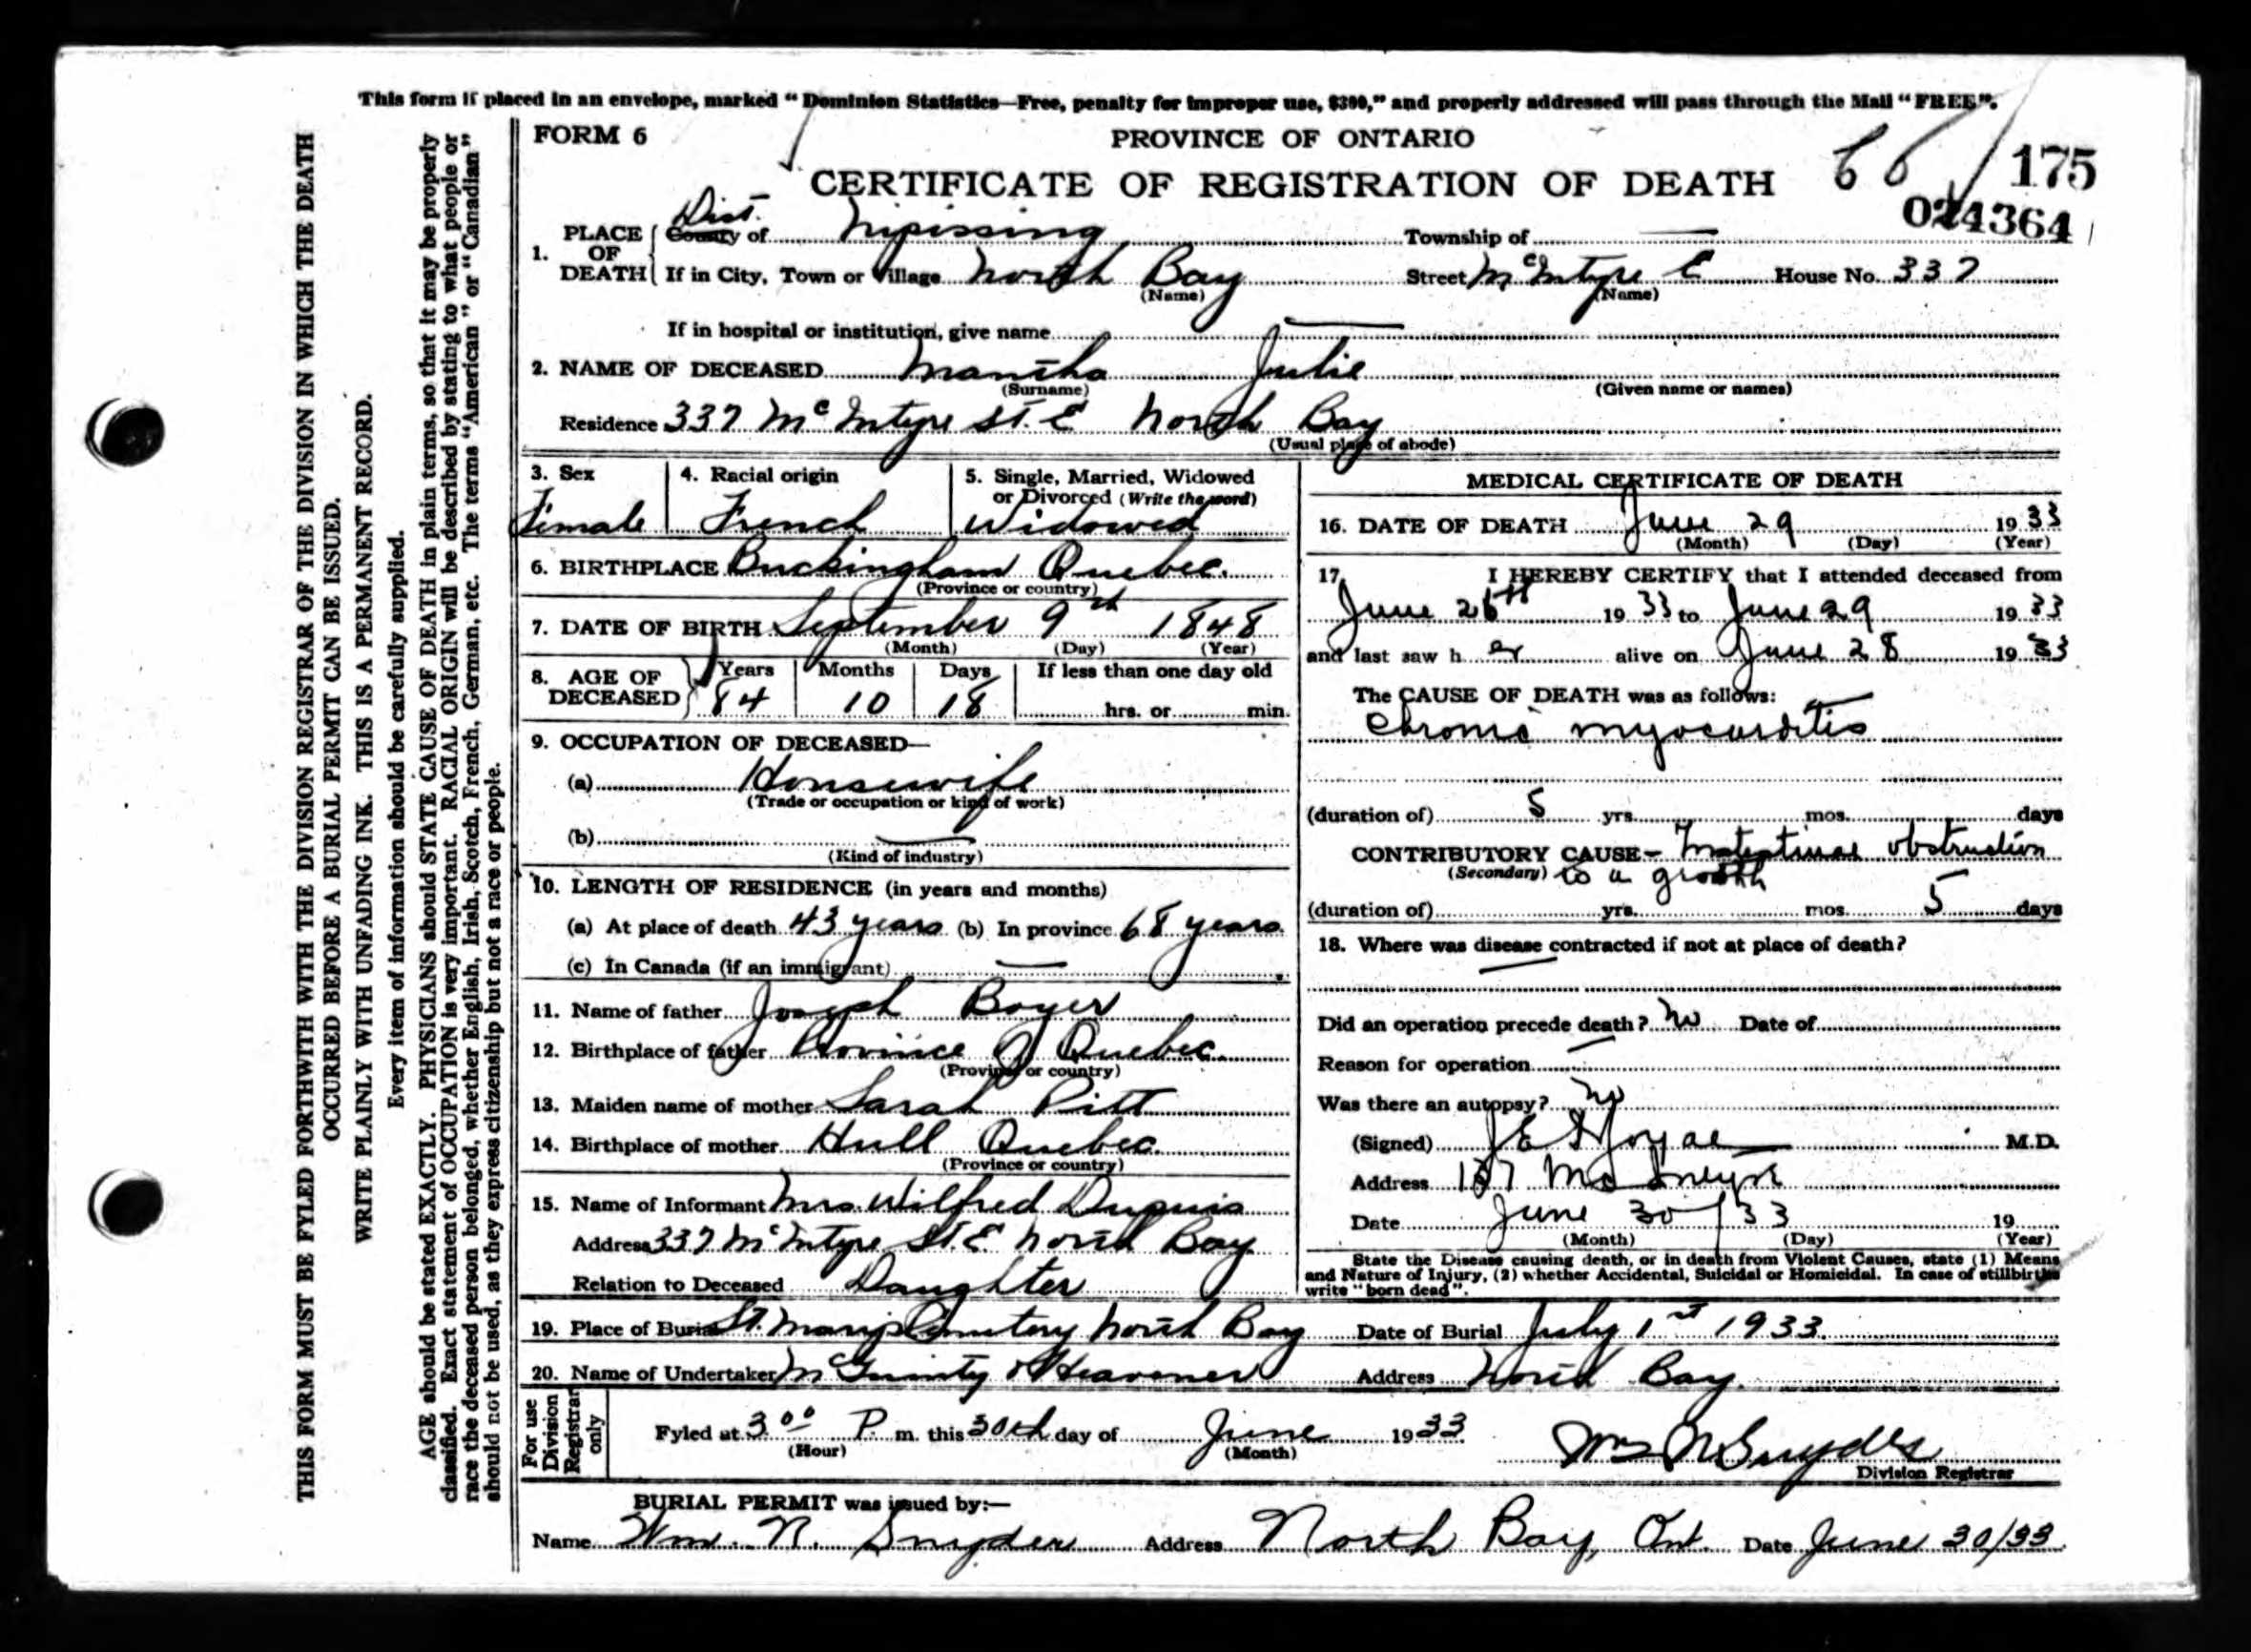 This form if placed in an envelope, marked “Dominion Statistics—Free, penalty for improper use, $300,” and properly addressed will pass through the Mail “FREE”.
FORM 6
PROVINCE OF ONTARIO
66
175
CERTIFICATE OF REGISTRATION OF DEATH
024364
1. PLACE OF DEATH
Dist.
County of Nipissing Township of —
If in City, Town or Village North Bay Street McIntyre E House No. 337
(Name) (Name)
If in hospital or institution, give name —
2. NAME OF DECEASED Mantha Julie
(Surname) (Given name or names)
Residence 337 McIntyre St. E North Bay
(Usual place of abode)
3. Sex
Female
4. Racial origin
French
5. Single, Married, Widowed
or Divorced (Write the word)
Widowed
6. BIRTHPLACE Buckingham Quebec.
(Province or country)
7. DATE OF BIRTH September 9th 1848
(Month) (Day) (Year)
8. AGE OF DECEASED
Years Months Days If less than one day old
84 10 18 hrs. or min.
9. OCCUPATION OF DECEASED—
(a) Housewife
(Trade or occupation or kind of work)
(b) —
(Kind of industry)
10. LENGTH OF RESIDENCE (in years and months)
(a) At place of death 43 years (b) In province 68 years.
(c) In Canada (if an immigrant) —
11. Name of father Joseph Boyer
12. Birthplace of father Province of Quebec.
(Province or country)
13. Maiden name of mother Sarah Pitt
14. Birthplace of mother Hull Quebec.
(Province or country)
15. Name of Informant Mrs. Wilfred Dupuis
Address 337 McIntyre St. E North Bay
Relation to Deceased Daughter
MEDICAL CERTIFICATE OF DEATH
16. DATE OF DEATH June 29 1933
(Month) (Day) (Year)
17. I HEREBY CERTIFY that I attended deceased from
June 26th 1933 to June 29 1933
and last saw her alive on June 28 1933
The CAUSE OF DEATH was as follows:
Chronic myocarditis
(duration of) 5 yrs. mos. days
CONTRIBUTORY CAUSE— Intestinal obstruction
(Secondary) to a growth
(duration of) yrs. mos. 5 days
18. Where was disease contracted if not at place of death?
—
Did an operation precede death? No Date of
Reason for operation —
Was there an autopsy? No
(Signed) M.D.
Address McIntyre
Date June 30/33 19
(Month) (Day) (Year)
State the Disease causing death, or in death from Violent Causes, state (1) Means
and Nature of Injury, (2) whether Accidental, Suicidal or Homicidal. In case of stillbirths
write “born dead”.
19. Place of Burial St. Marys Cemetery North Bay Date of Burial July 1st 1933.
20. Name of Undertaker McGuinty & Heavener Address North Bay.
For use Division Registrar only
Fyled at 3.00 P. m. this 30th day of June 1933
(Hour) (Month)
Wm N Snyder
Division Registrar
BURIAL PERMIT was issued by:—
Name Wm. N. Snyder Address North Bay, Ont. Date June 30/33
THIS FORM MUST BE FYLED FORTHWITH WITH THE DIVISION REGISTRAR OF THE DIVISION IN WHICH THE DEATH
OCCURRED BEFORE A BURIAL PERMIT CAN BE ISSUED.
WRITE PLAINLY WITH UNFADING INK. THIS IS A PERMANENT RECORD.
Every item of information should be carefully supplied.
AGE should be stated EXACTLY. PHYSICIANS should STATE CAUSE OF DEATH in plain terms, so that it may be properly
classified. Exact statement of OCCUPATION is very important. RACIAL ORIGIN will be described by stating to what people or
race the deceased person belonged, whether English, Irish, Scotch, French, German, etc. The terms “American” or “Canadian”
should not be used, as they express citizenship but not a race or people.